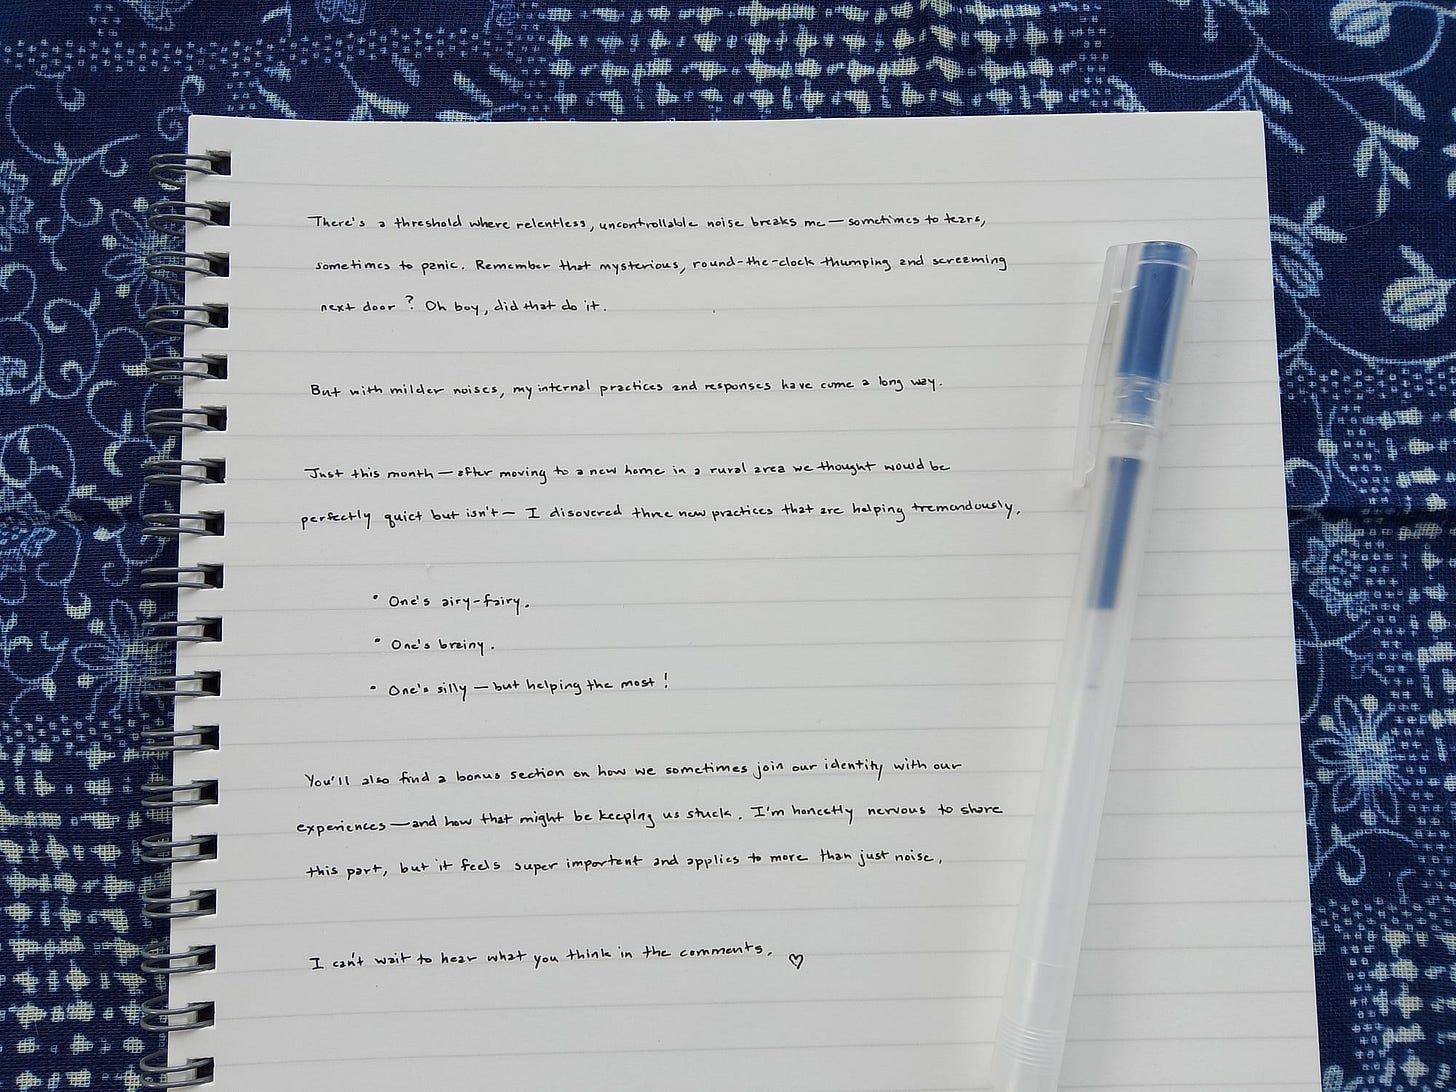 There's a threshold where relentless, uncontrollable noise breaks me — sometimes to tears,
sometimes to panic. Remember that mysterious, round-the-clock thumping and screaming
next door? Oh boy, did that do it.
But with milder noises, my internal practices and responses have come a long way.
Just this month — after moving to a new home in a rural area we thought would be
perfectly quiet but isn't — I disovered three new practices that are helping tremendously.
• One's airy-fairy.
• One's brainy.
• One's silly — but helping the most!
You'll also find a bonus section on how we sometimes join our identity with our
experiences — and how that might be keeping us stuck. I'm honestly nervous to share
this part, but it feels super important and applies to more than just noise.
I can't wait to hear what you think in the comments. ♡